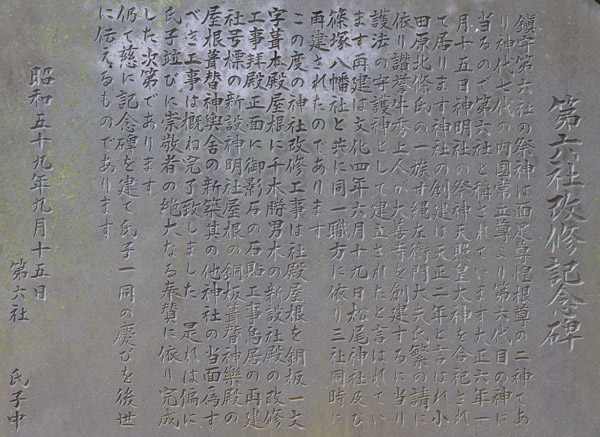 第六社改修記念碑
鎮守第六社の祭神は面足尊惶根尊の二神であ
り神代七代の内國常立尊より第六代目の神に
当るので第六社と稱されています大正六年一
月十五日神明社の祭神天照皇大神を合祀され
て居ります神社の創建は天正二年と言はれ小
田原北條氏の一族甘縄左衛門大夫氏繁の請に
依り讃誉牛秀上人が大善寺を創建するに当り
護法の守護神として建立されたと言はれてい
ます再建は文化四年六月十九日松尾神社及び
篠塚八幡社と共に同一職方に依り三社同時に
再建されたのであります
この度の神社改修工事は社殿屋根を銅板一文
字葺本殿屋根に千木勝男木の新設社殿の改修
工事拜殿正面に御影石の石貼工事鳥居の再建
社号標の新設神明社屋根の銅板葺替神樂殿の
屋根葺替神輿舎の新築其の他神社の当面爲す
べき工事は概ね完了致しました 是れは偏に
氏子並びに崇敬者の絶大なる奉賛に依り完成
した次第であります
仍て茲に記念碑を建て氏子一同の慶びを後世
に伝えるものであります
昭和五十九年九月十五日
第六社 氏子中